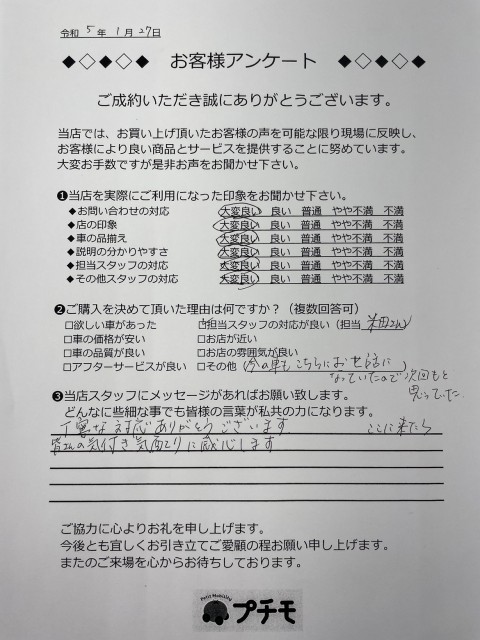 令和 5 年 1 月 27日
◆◇◆◇◆ お客様アンケート ◆◇◆◇◆
ご成約いただき誠にありがとうございます。
当店では、お買い上げ頂いたお客様の声を可能な限り現場に反映し、
お客様により良い商品とサービスを提供することに努めています。
大変お手数ですが是非お声をお聞かせ下さい。
❶当店を実際にご利用になった印象をお聞かせ下さい。
◆お問い合わせの対応 大変良い 良い 普通 やや不満 不満
◆店の印象 大変良い 良い 普通 やや不満 不満
◆車の品揃え 大変良い 良い 普通 やや不満 不満
◆説明の分かりやすさ 大変良い 良い 普通 やや不満 不満
◆担当スタッフの対応 大変良い 良い 普通 やや不満 不満
◆その他スタッフの対応 大変良い 良い 普通 やや不満 不満
❷ご購入を決めて頂いた理由は何ですか？（複数回答可）
□欲しい車があった □担当スタッフの対応が良い（担当 米田さん）
□車の価格が安い □お店が近い
□車の品質が良い □お店の雰囲気が良い
□アフターサービスが良い □その他（今の車もこちらにお世話に
なっていたので次回もと
思っていた）
❸当店スタッフにメッセージがあればお願い致します。
どんなに些細な事でも皆様の言葉が私共の力になります。
丁寧な対応ありがとうございます ここに来たら
皆さんの気付き気配りに感心します
ご協力に心よりお礼を申し上げます。
今後とも宜しくお引き立てご愛顧の程お願い申し上げます。
またのご来場を心からお待ちしております。
Petit Mobility
プチモ